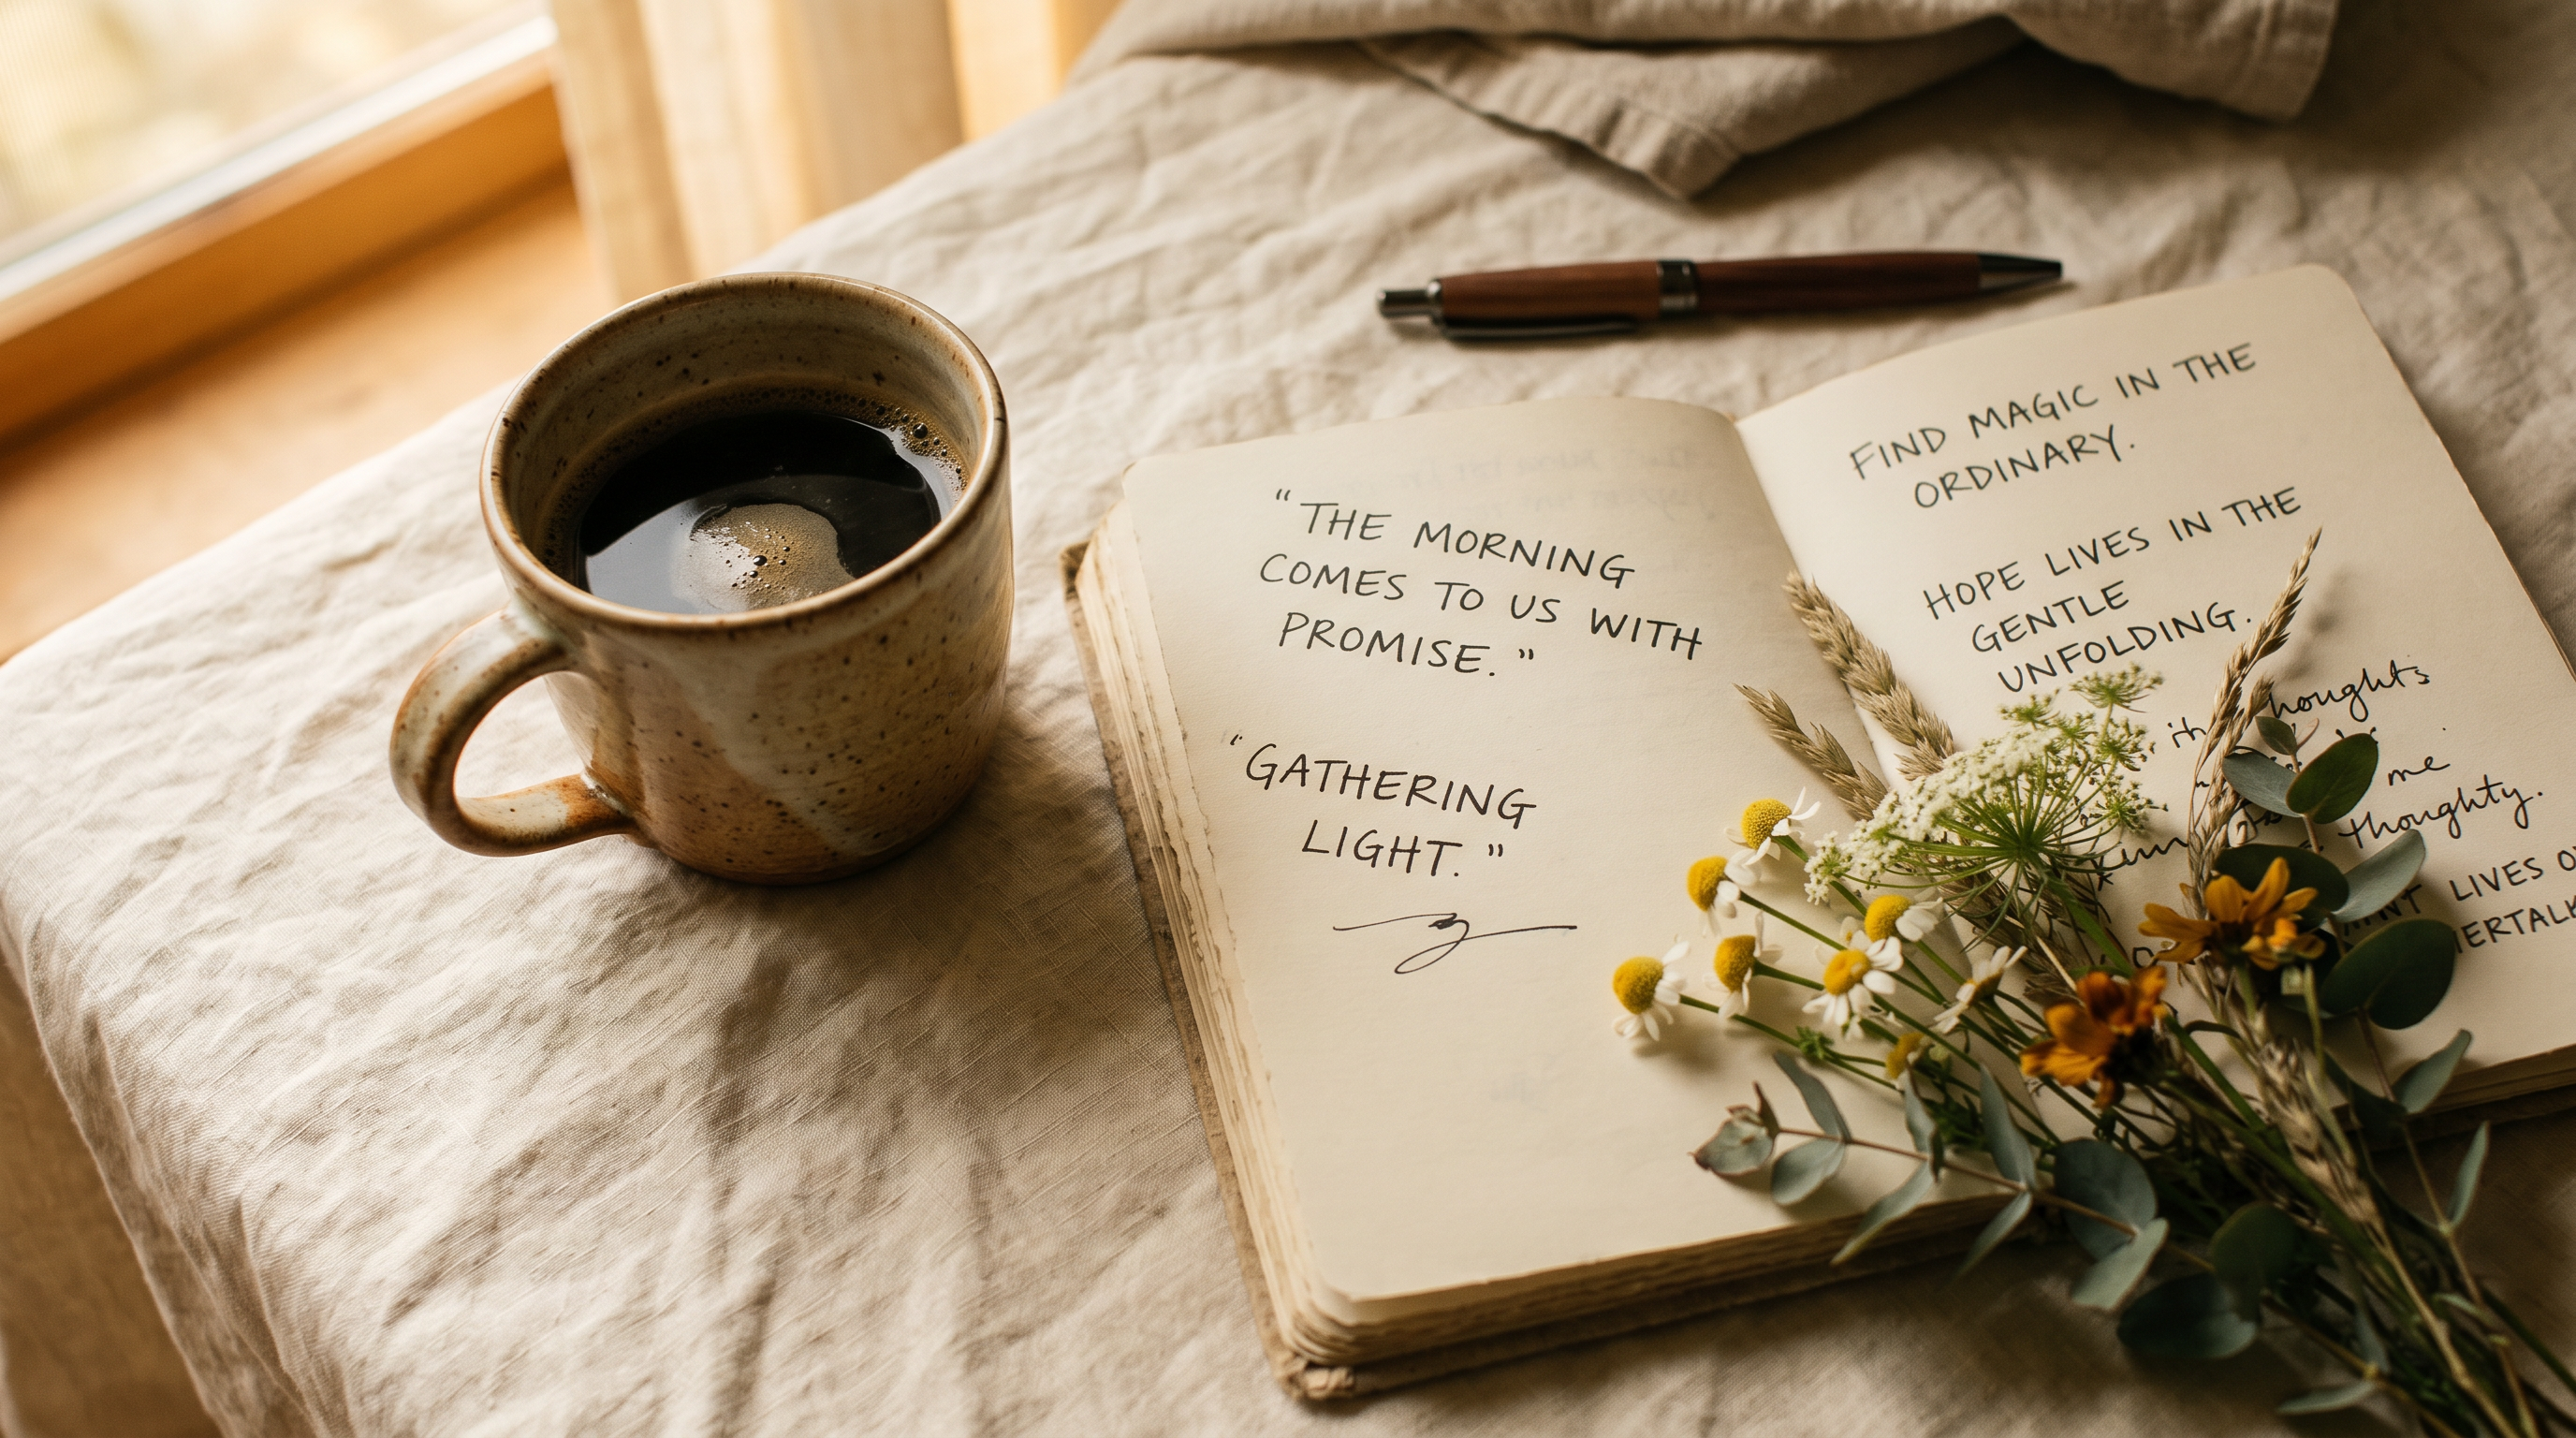 “THE MORNING
COMES TO US WITH
PROMISE.”
“GATHERING
LIGHT.”
FIND MAGIC IN THE
ORDINARY.
HOPE LIVES IN THE
GENTLE
UNFOLDING.
thoughts
me
thoughty.
LIVES